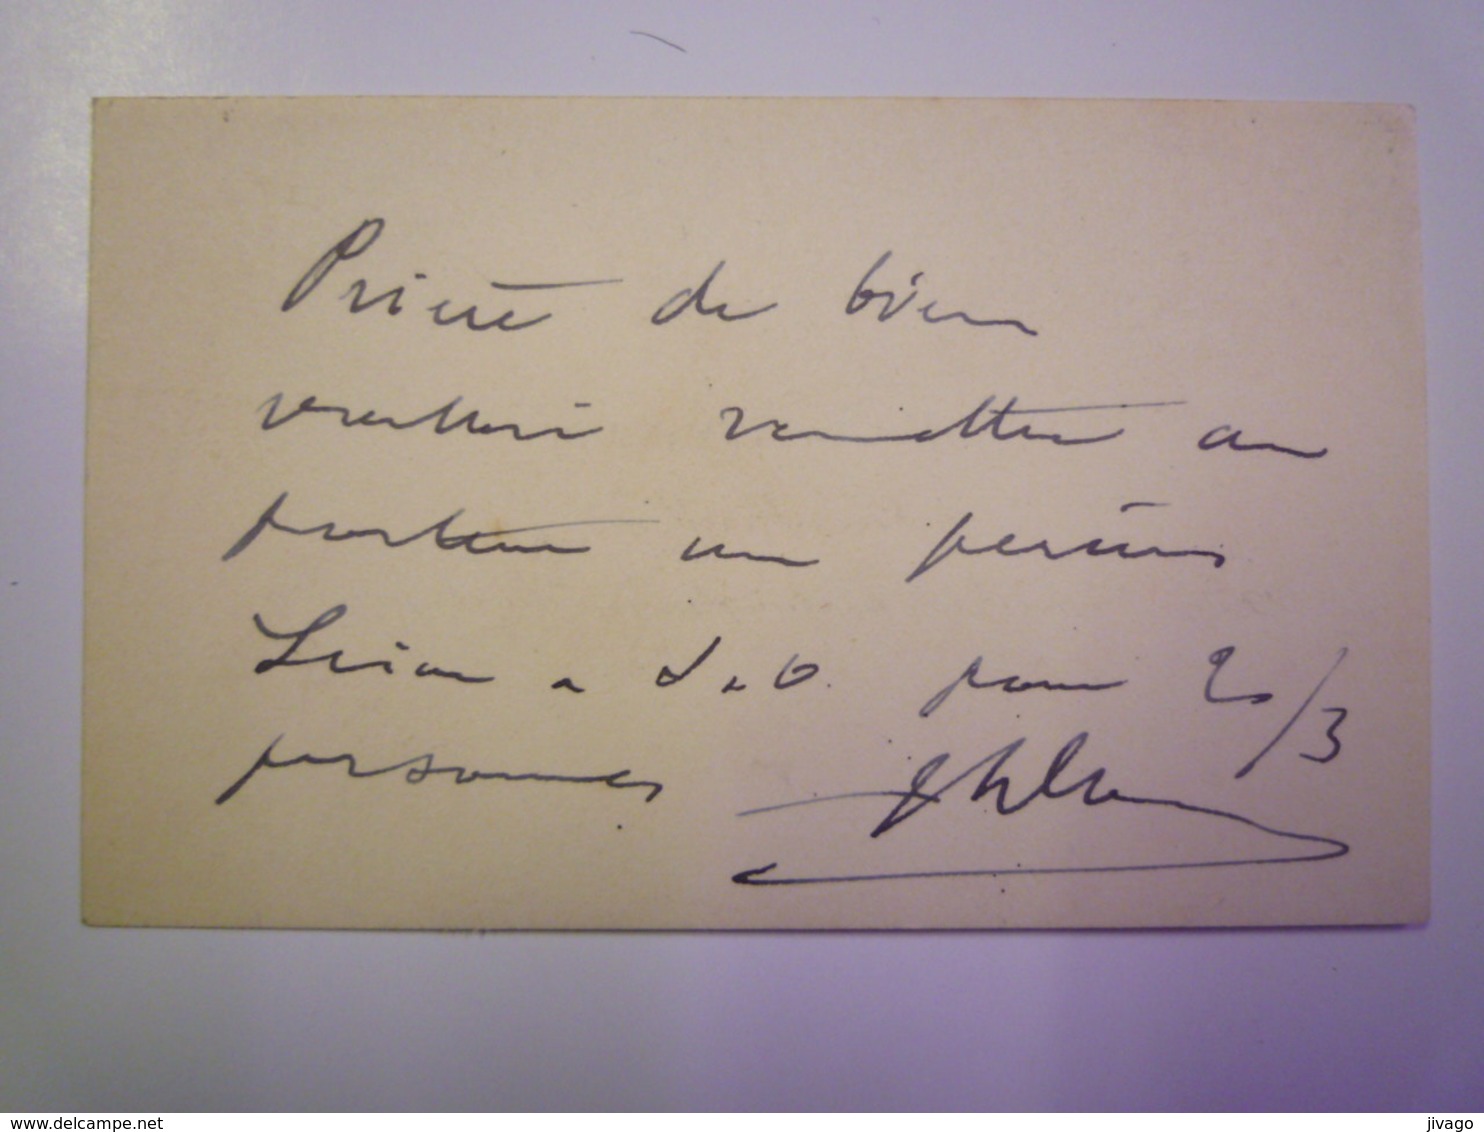 Prière de bien
vouloir remettre au
porteur un permis
pour 2/3
personnes
www.delcampe.net
jivago